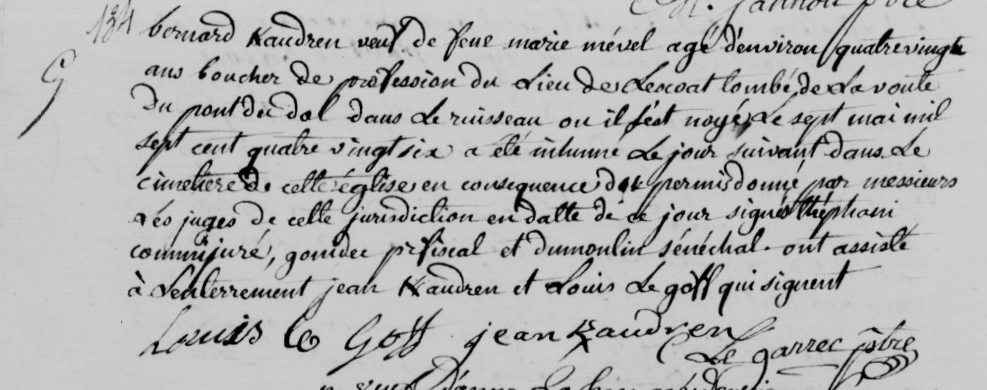 134 bernard Kaudren veuf de feue marie mével agé d'environ quatre vingt
G
ans boucher de profession du Lieu de Lescoat tombé de La voute
du pont du dol dans Le ruisseau ou il s'est noyé Le sept mai mil
sept cent quatre vingt six a été inhumé Le jour suivant dans Le
cimetiere de cette église en consequence du permis donné par messieurs
Les juges de cette jurisdiction en datte de ce jour signés théphani
commis juré, gonidec pr fiscal et dumoulin sénéchal. ont assisté
à Lenterrement jean Kaudren et Louis Le goff qui signent
Louis le Goff jean Kaudren
Le garrec ptre